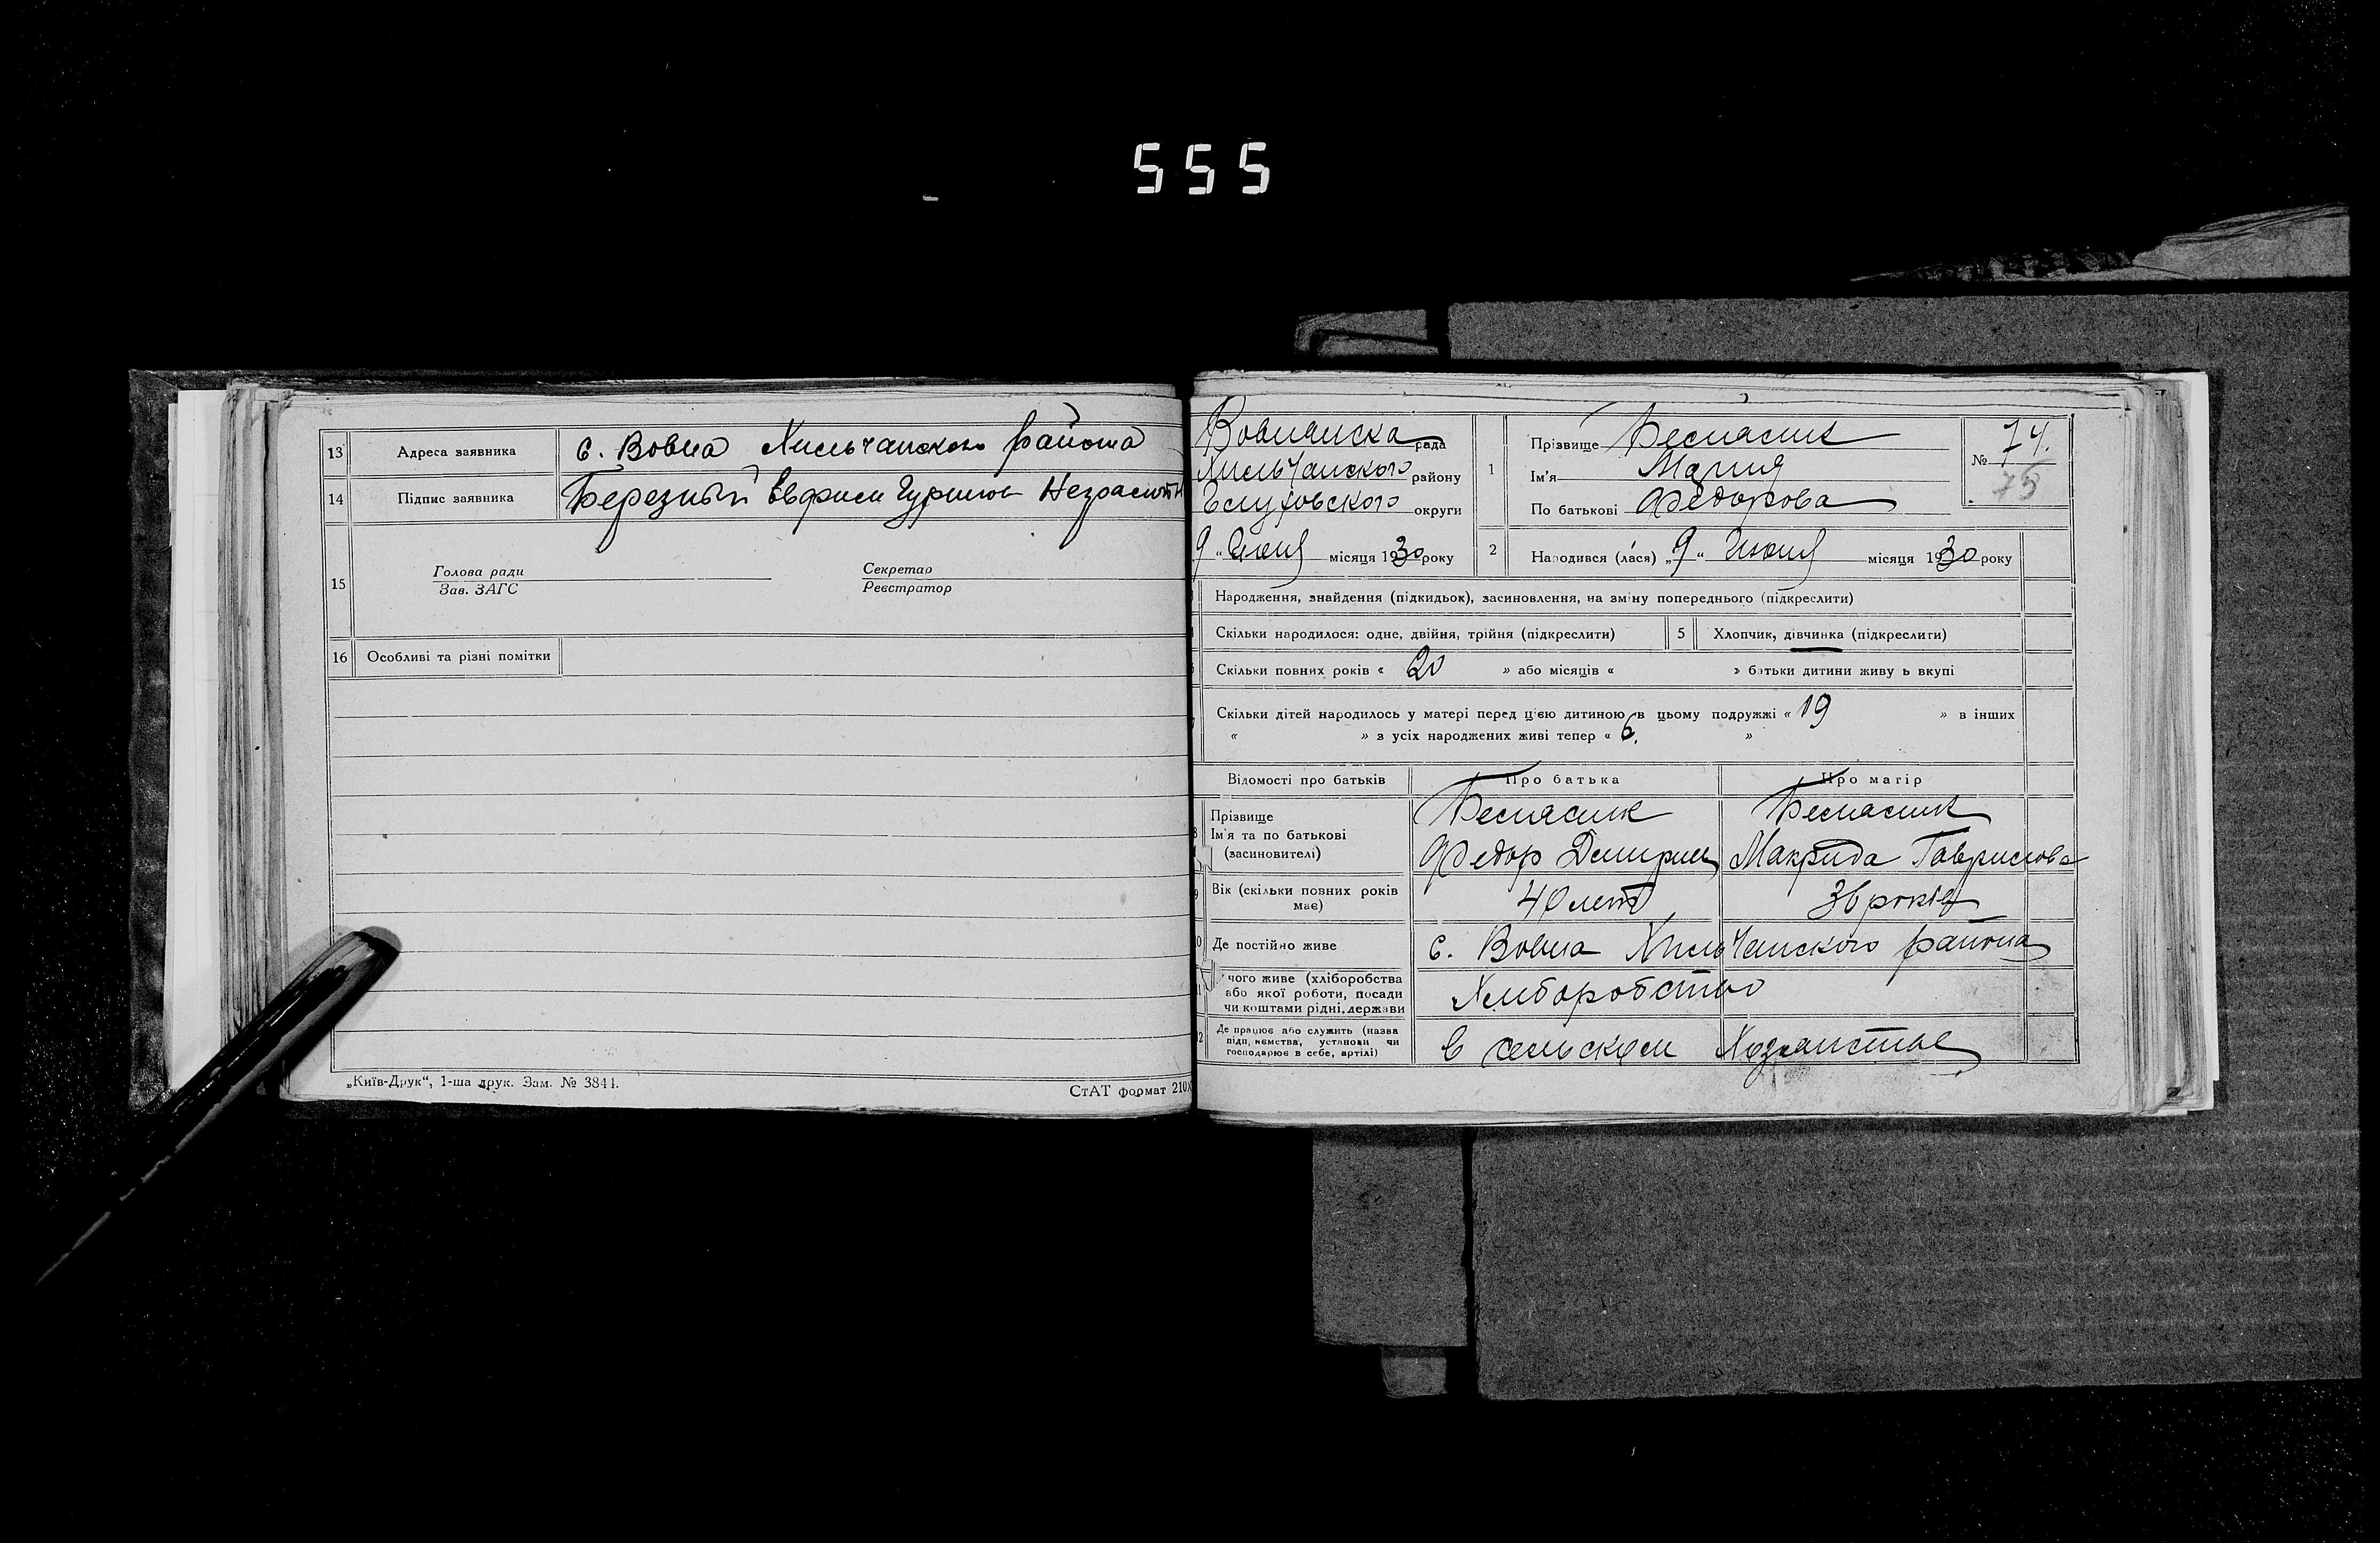 555
13 Адреса заявника с. Вовна Хильчанского района
14 Підпис заявника Березный
15 Голова ради
Зав. ЗАГС
Секретар
Реєстратор
16 Особливі та різні помітки
„Київ-Друк“, 1-ша друк. Зам. № 3844.
СтАТ формат 210
Вовнянска рада
Хильчанского району
Глуховского округи
9 " Июня місяця 1930 року
1 Прізвище
Ім'я Мария
По батькові Федорова
№ 74.
75
2 Народився (лася) „ 9 " Июня місяця 1930 року
Народження, знайдення (підкидьок), засиновлення, на зміну попереднього (підкреслити)
Скільки народилося: одне, двійня, трійня (підкреслити) 5 Хлопчик, дівчинка (підкреслити)
Скільки повних років « 20 » або місяців « » батьки дитини живуть вкупі
Скільки дітей народилось у матері перед цією дитиною в цьому подружжі « 19 » в інших
« » з усіх народжених живі тепер « 6. »
Відомості про батьків Про батька Про матір
Прізвище
Ім'я та по батькові Федор Макрида Гаврилова
(засновителі)
Вік (скільки повних років має) 40 лет 36 років
Де постійно живе с. Вовна Хильчанского района
чого живе (хліборобства
або якої роботи, посади
чи коштами рідні, держави Хлиборобство
Де працює або служить (назва
підприємства, установи чи
господарює в себе, артілі) в сельском Хозяистве